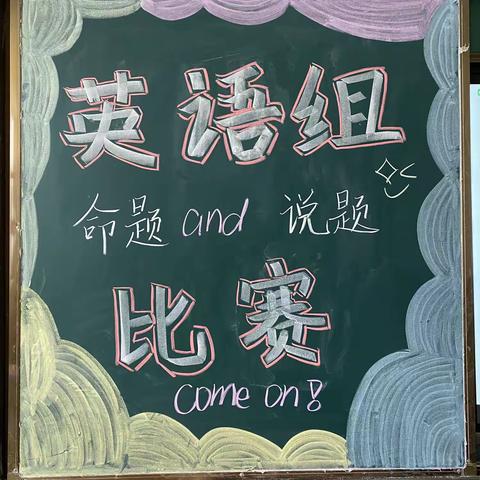 英语组
命题 and 说题
比赛
come on!